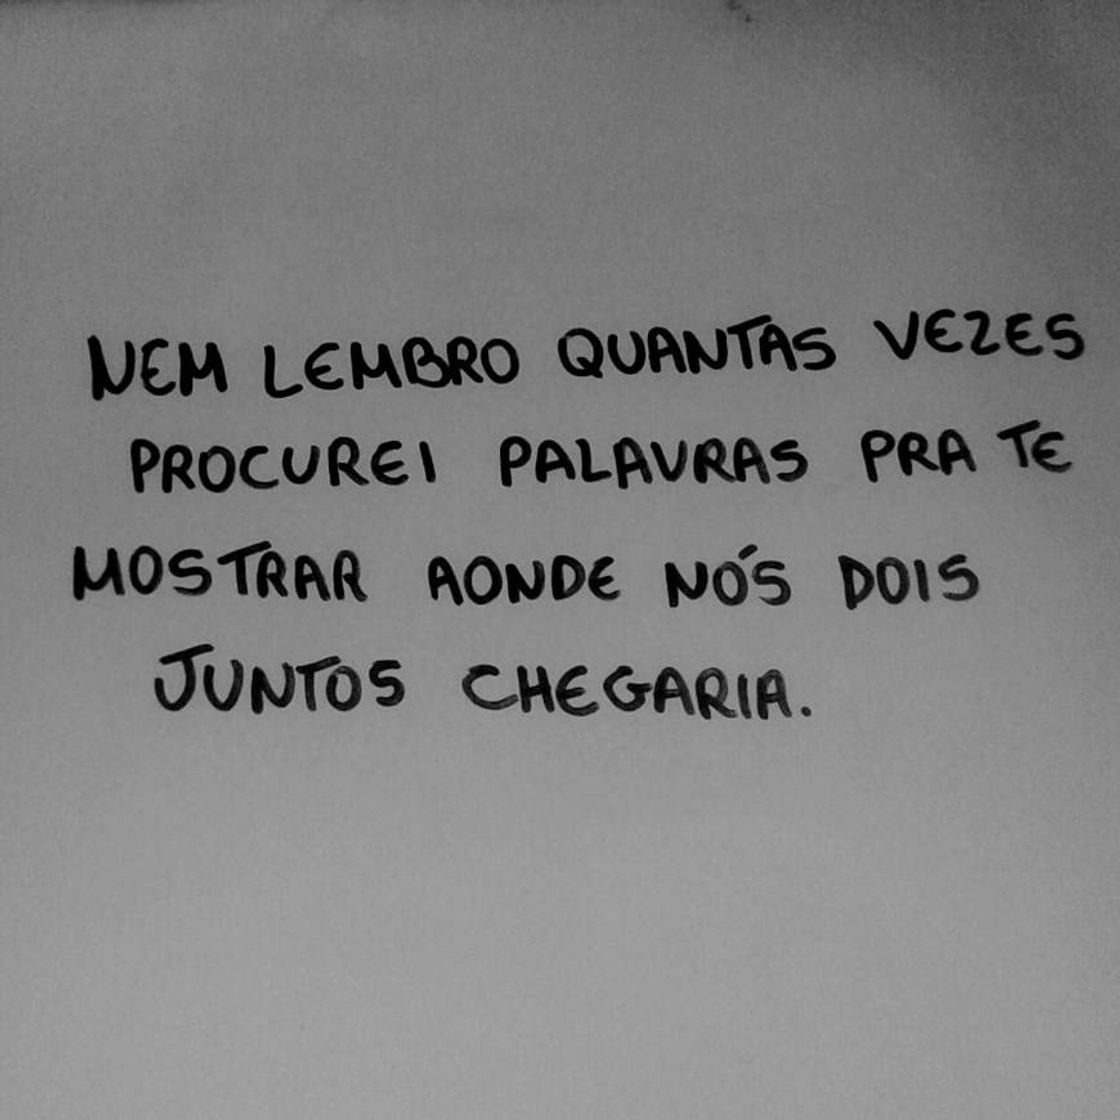 NEM LEMBRO QUANTAS VEZES
PROCUREI PALAVRAS PRA TE
MOSTRAR AONDE NÓS DOIS
JUNTOS CHEGARIA.